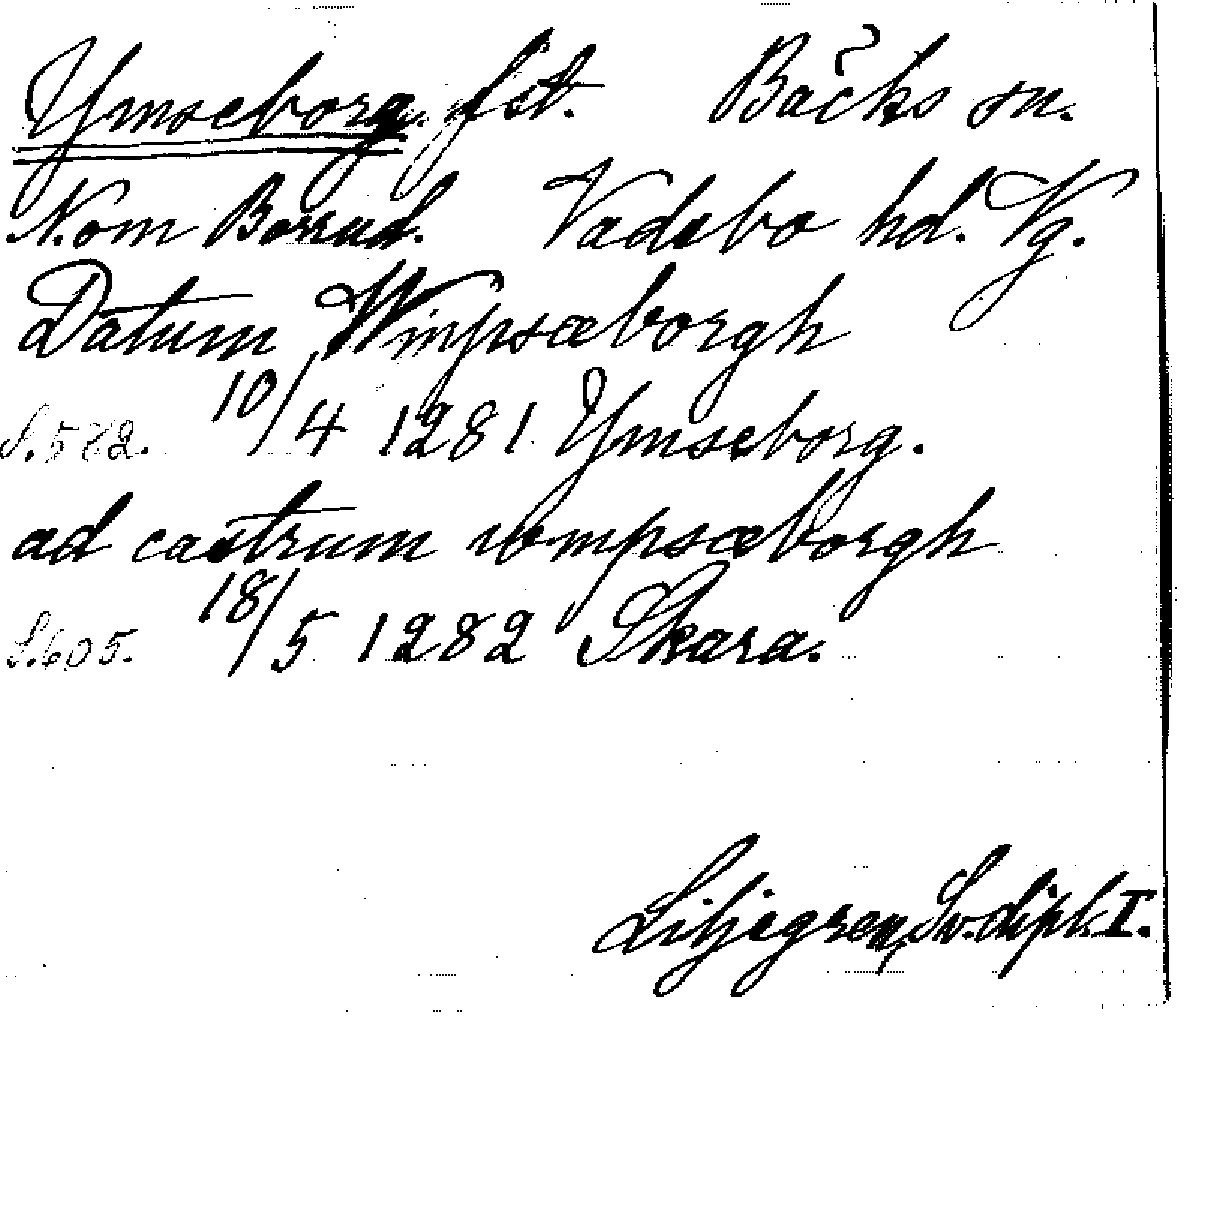 Ymseborg. fst. Bäcks sn.
N. om Borrud. Vadsbo hd. Vg.
Datum Wmpsæborgh
S. 582. 10/4 1281 Ymseborg.
ad castrum wmpsæborgh
S. 605. 18/5 1282 Skara.
Liljegren, Sv. dipl. I.